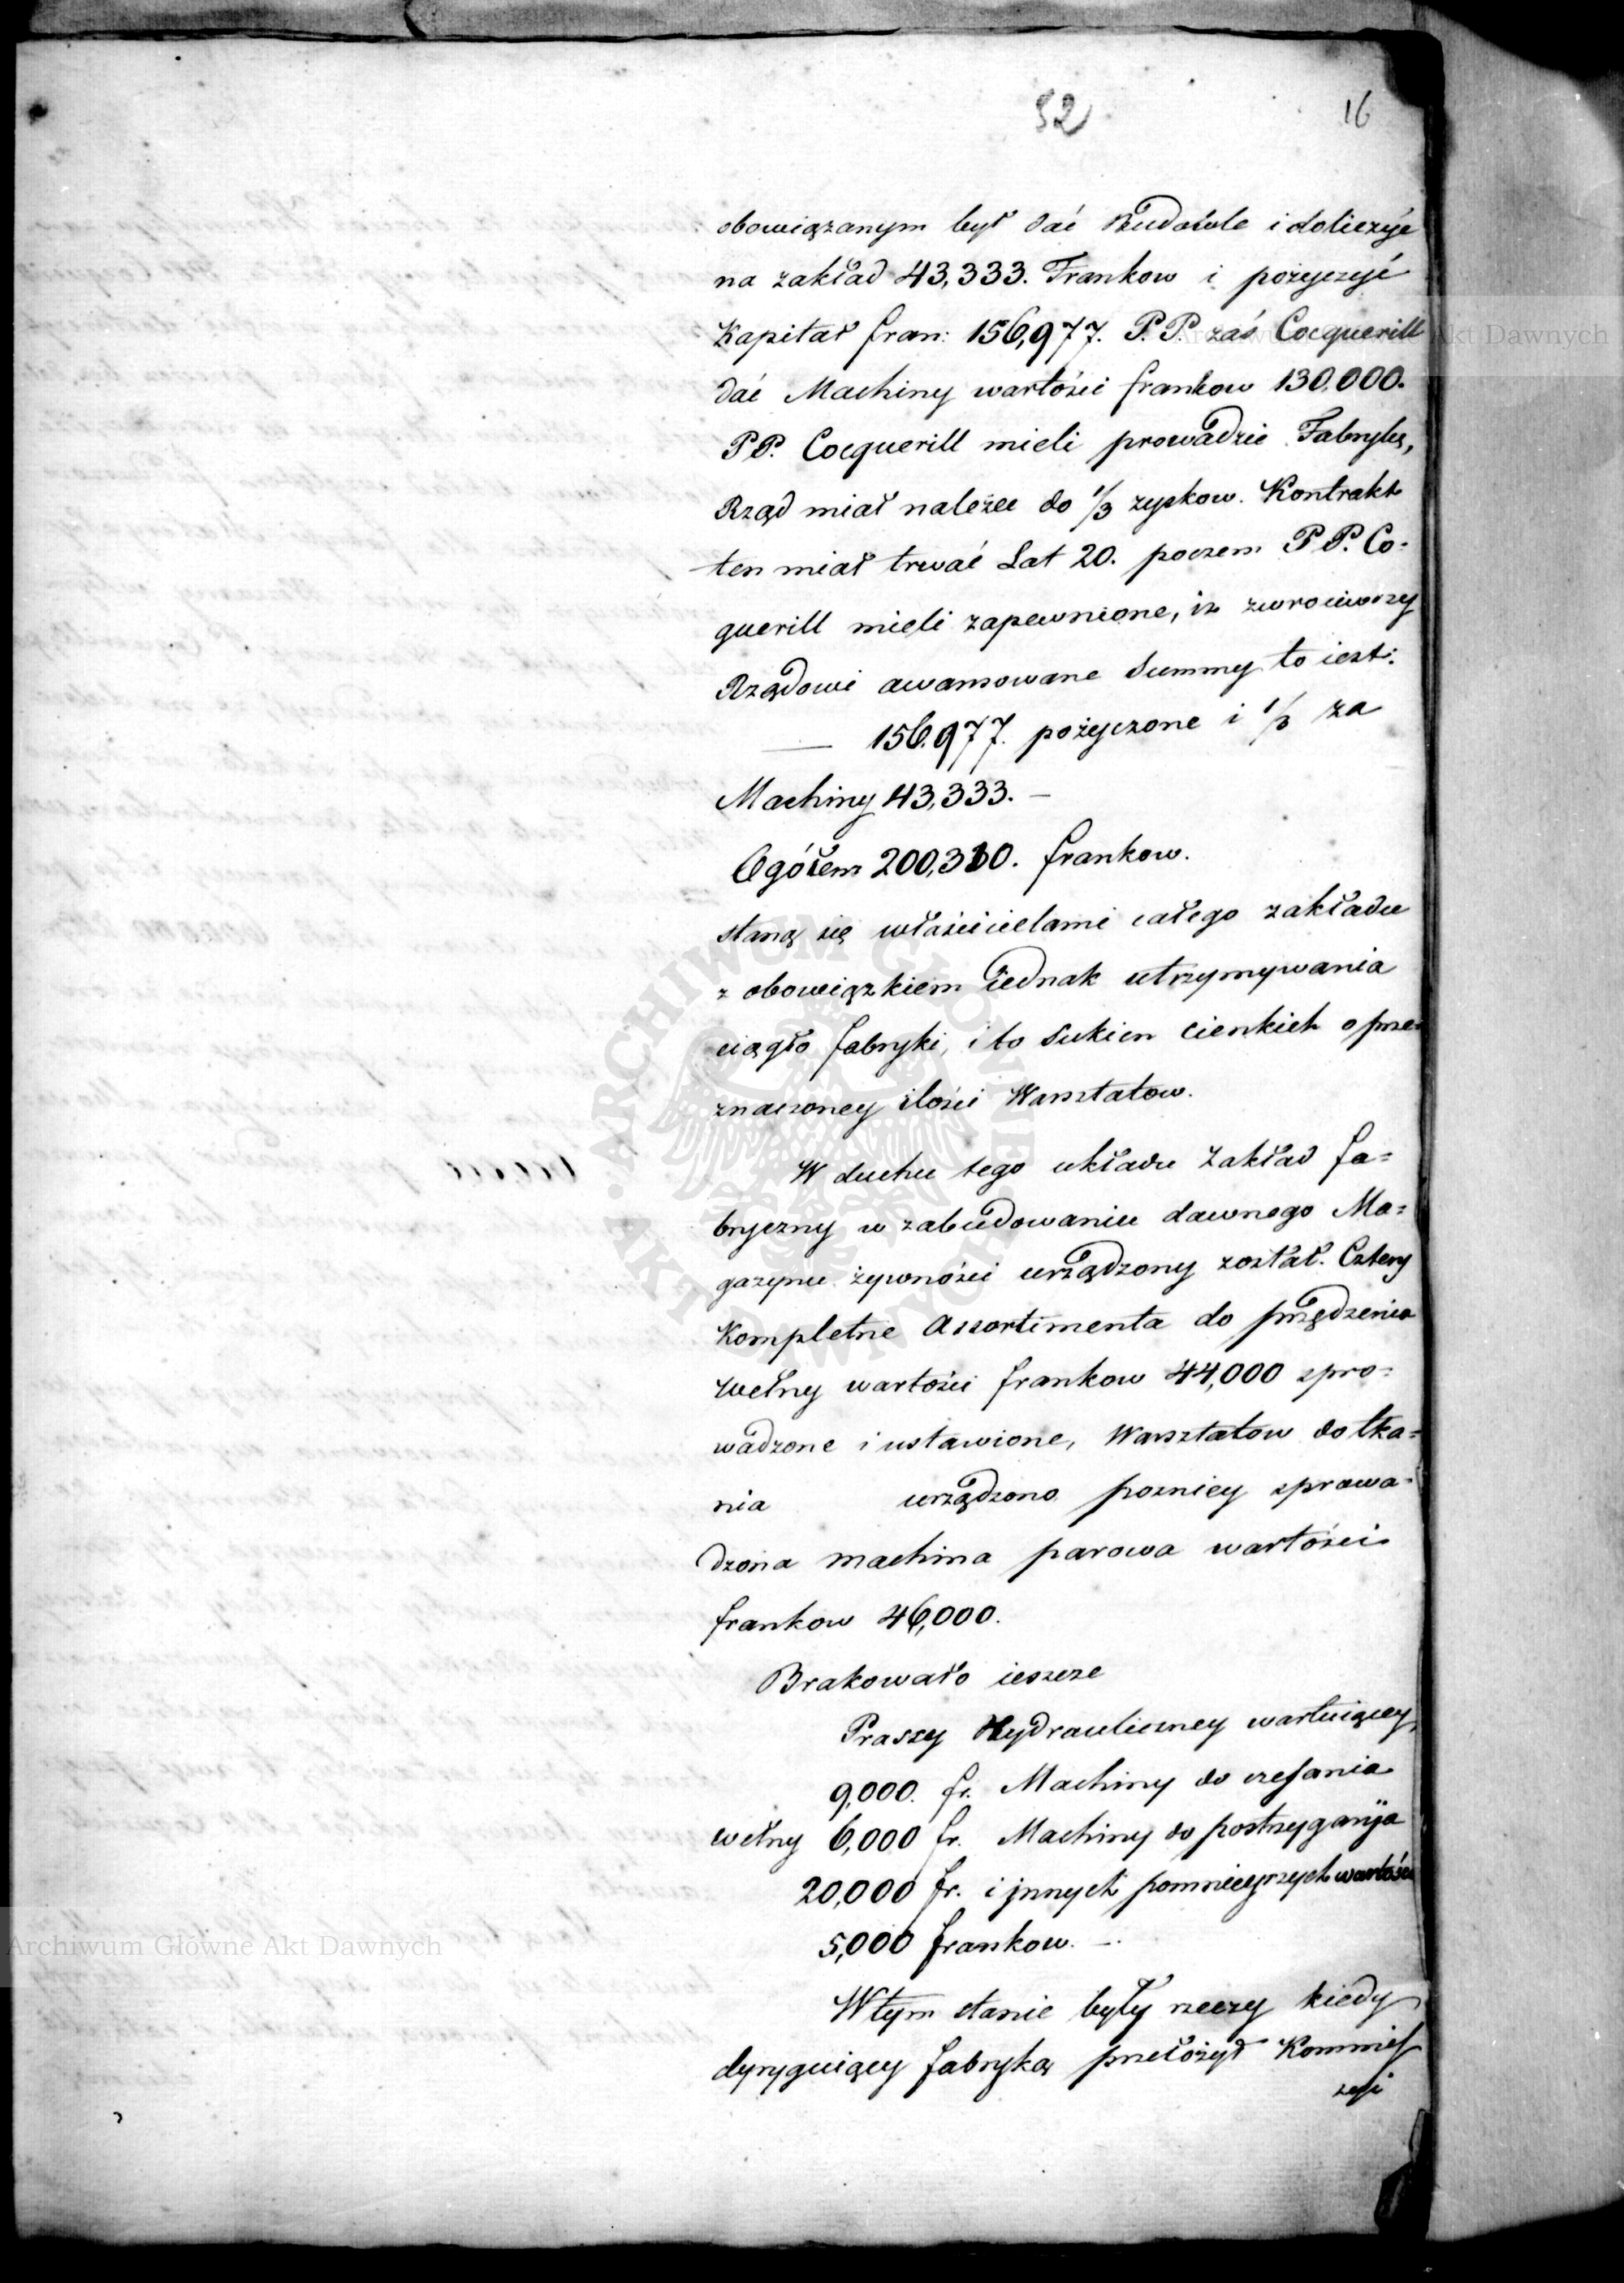 52 16
obowiązanym był dać Budowle i doliczyć
na zakład 43,333. Frankow i pożyczyć
Kapitał fran: 156,977. P.P. zaś Cocquerill
dać Machiny wartości frankow 130,000.
PP. Cocquerill mieli prowadzić Fabrykę,
Rząd miał należec do 1/3 zyskow. Kontrakt
ten miał trwać Lat 20. poczem P P. Co-
querill mieli zapewnione, iż zwrociwszy
Rządowi awansowane Summy to iest:
— 156,977. pożyczone i 1/3 za
Machiny 43,333. —
Ogółem 200,310. frankow.
staną się właścicielami całego zakładu
z obowiązkiem iednak utrzymywania
ciągło fabryki, i to Sukien cienkich o prze-
znaczoney ilości Warsztatow.
W duchu tego układu Zakład fa=
bryczny w zabudowaniu dawnego Ma=
gazynu żywności urządzony został. Cztery
Kompletne Assortimenta do przędzenia
Wełny wartości frankow 44,000 spro=
wadzone i ustawione, Warsztatow do tka=
nia urządzono pozniey sprowa=
dzona machina parowa wartości
frankow 46,000.
Brakowało ieszcze
Prassy Hydrauliczney wartuiącey
9,000. fr. Machiny do czesania
wełny 6,000 fr. Machiny do postrzygania
20,000 fr. i jnnych pomnieyszych wartości
5,000 frankow. —
W tym stanie były rzeczy kiedy
dyryguiący fabryką przełożył Kommis
syi
Archiwum Główne Akt Dawnych
Archiwum Główne Akt Dawnych
ARCHIWUM GŁÓWNE AKT DAWNYCH